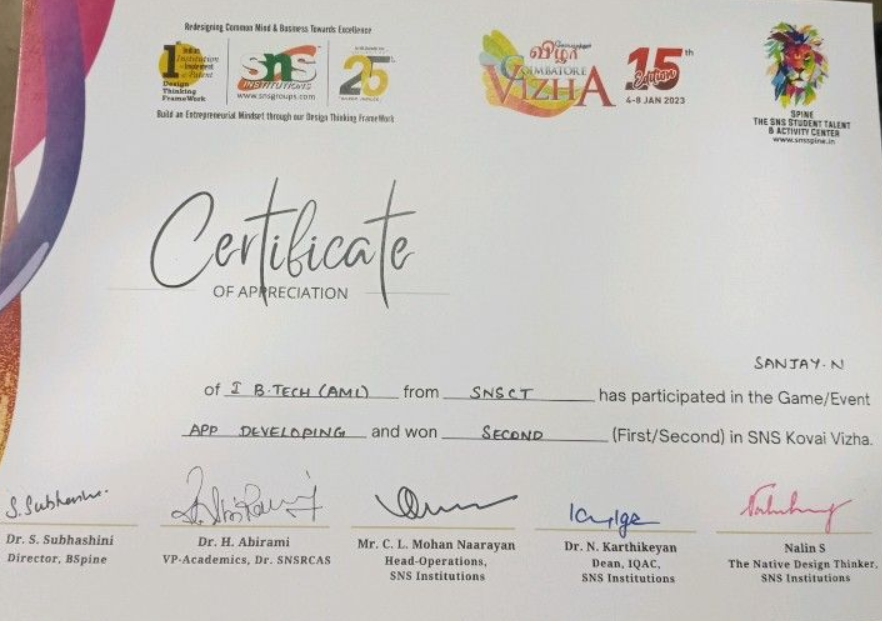 Redesigning Common Mind & Business Towards Excellence
Institution
Design
Thinking
FrameWork
SNS
INSTITUTIONS
www.snsgroups.com
25
Build an Entrepreneurial Mindset through our Design Thinking FrameWork
விழா
COIMBATORE
VIZHA
15th
Edition
4-8 JAN 2023
SPINE
THE SNS STUDENT TALENT
& ACTIVITY CENTER
www.snsspine.in
Certificate
OF APPRECIATION
SANJAY.N
of I B.TECH (AML) from SNSCT has participated in the Game/Event
APP DEVELOPING and won SECOND (First/Second) in SNS Kovai Vizha.
S. Subhashini
Dr. S. Subhashini
Director, BSpine
Dr. H. Abirami
VP-Academics, Dr. SNSRCAS
Mr. C. L. Mohan Naarayan
Head-Operations,
SNS Institutions
Dr. N. Karthikeyan
Dean, IQAC,
SNS Institutions
Nalin S
The Native Design Thinker,
SNS Institutions